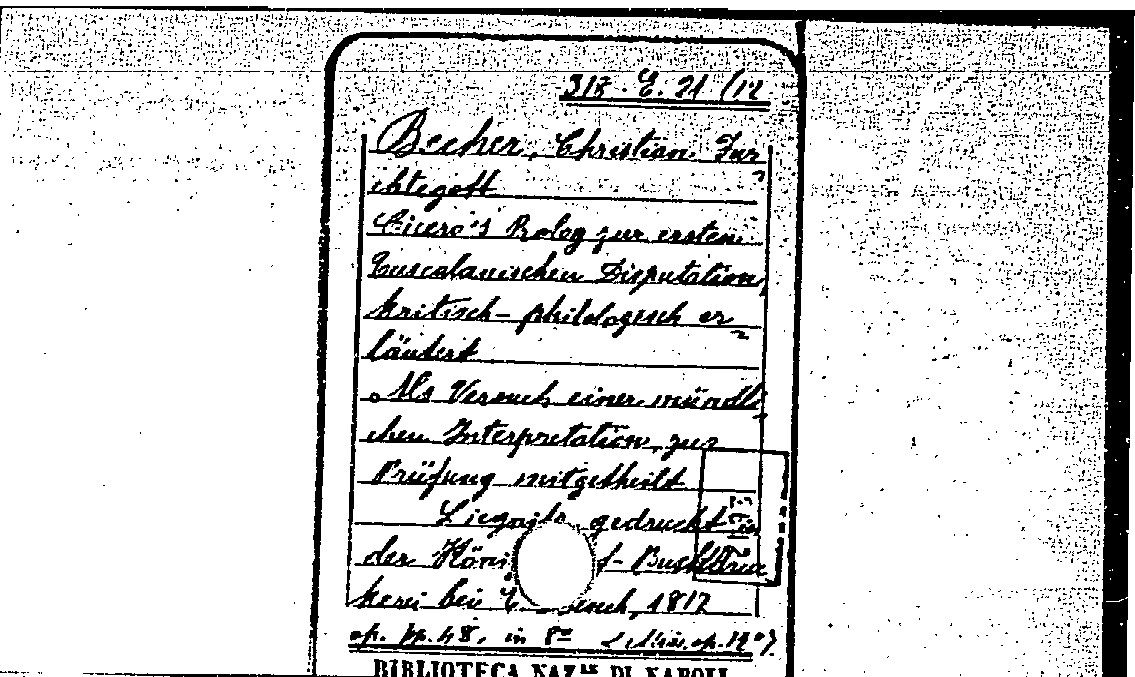 318. E. 21 (12
Becher, Christian Fur
chtegott
Cicero's Prolog zur ersten
Tusculanischen Disputation,
kritisch-philologisch er
läutert
Als Versuch einer mündli
chen Interpretation, zur
Prüfung mitgetheilt
Liegnitz, gedruckt in
der Köni f- Buchdruc
kerei bei E. 1817
op. pp. 48, in 8º
BIBLIOTECA NAZLE DI NAPOLI